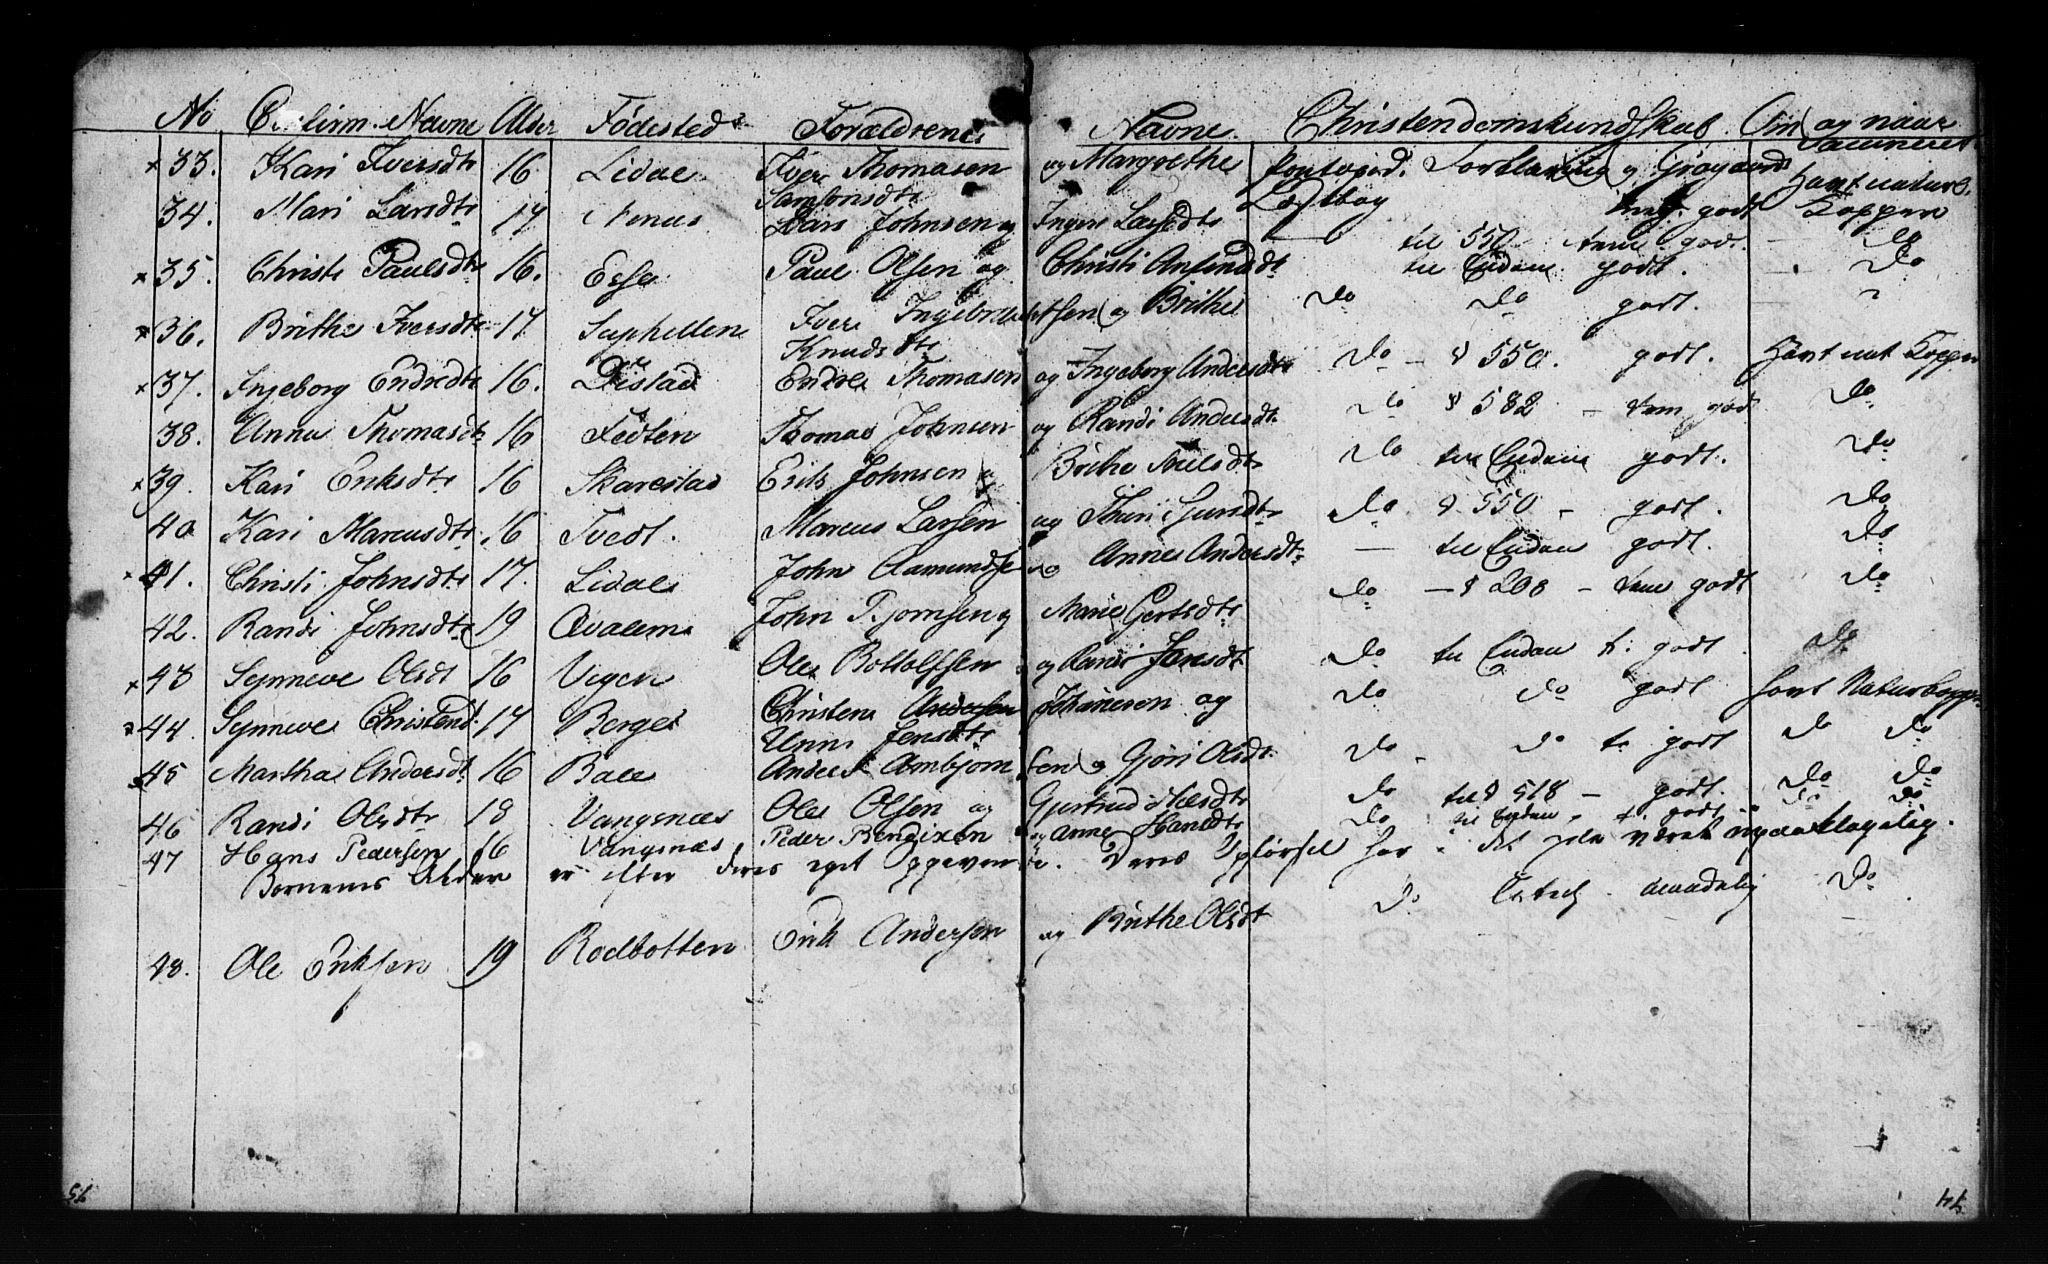 No Confirm. Navne Alder Fødested Forældrenes Navne. Christendomskundskab Om og naar Vaccineret
× 33. Kari Iversdtr 16. Lidal Iver Thomasen og Margrethe Pontopid. Forklaring og Grøgaards havt naturl.
Samsonsdtr Læsebog godt Kopper
34. Mari Larsdtr 17 Nenæs Lars Johnsen og Ingeborg Larsdtr til 550 tem. godt. — Do
× 35. Christi Paulsdtr 16. Esse Paul Olsen og Christi Ansinsdtr til Enden godt. — Do
× 36. Brithe Iversdtr 17 Suphellen Iver Ingebretsen og Brithe Do Do godt. "
Knudsdtr
× 37. Ingeborg Endredtr 16. Distad Endre Thomasen og Ingeborg Andersdtr Do — § 550. godt. Havt nat Kopper
38. Anna Thomasdtr 16 Fedten Thomas Johnsen og Randi Andersdt. Do § 582 — tem godt Do
× 39. Kari Eriksdtr 16 Skarestad Erik Johnsen og Brithe Nielsdtr Do til Enden godt. Do
40 Kari Marcusdtr 16 Tvedt. Marcus Larsen og Thuri Do § 550 — godt. Do
× 41. Christi Johnsdtr 17. Lidal John Aamundse og Anne Andersdtr — til Enden godt. Do
42. Randi Johnsdtr 19 Qvalem John Bjørnsen og Marie Gertsdtr Do — § 208 — tem godt Do
× 43 Synneve Olsdt 16 Vigen Ole Bottolfsen og Randi Jensdt Do til Enden t. godt Do
× 44. Synneve Christensd. 17 Berge Christen Andersen Johannesen og Do Do godt havt Naturkopper
Unni Jensdtr
× 45 Martha Andersdt. 16 Bale Anders Arnbjørnsen og Gjøri Olsdt. Do Do t. godt Do Do
46 Randi Olsdtr 18 Vangsnæs Ole Olsen og Gjertrud Nielsdtr Do til § 518 — godt. Do Do
47 Hans Pedersen 16 Vangsnæs Peder Bendixen og Anne Hansdtr Do til Enden t. godt Do Do
Børnenes Alder er efter deres eget Opgivende. Deres Opførsel har i det hele været upaaklagelig.
48. Ole Eriksen 19 Rodbotten Erik Andersen og Brithe Olsdt Do maadelig Do
74